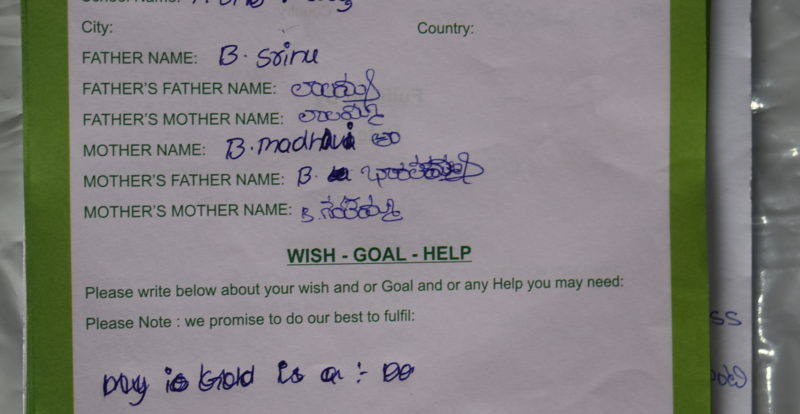 City: Country:
FATHER NAME: B. Srinu
FATHER'S FATHER NAME:
FATHER'S MOTHER NAME:
MOTHER NAME: B. madhavi
MOTHER'S FATHER NAME: B.
MOTHER'S MOTHER NAME: B.
WISH - GOAL - HELP
Please write below about your wish and or Goal and or any Help you may need:
Please Note : we promise to do our best to fulfil:
my is Gold is a :- Do
SS